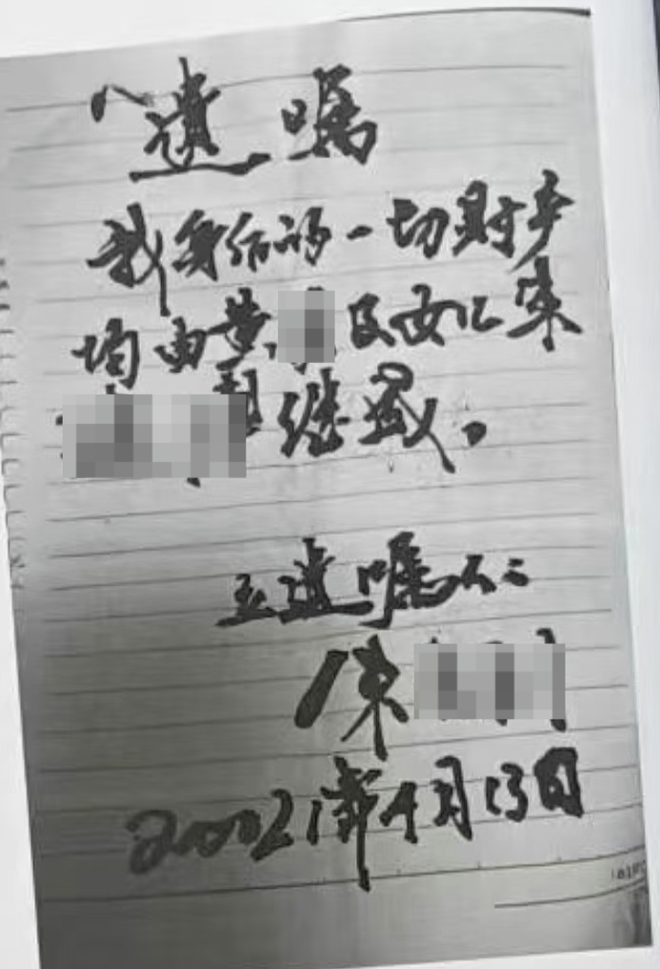 遗嘱
我身后的一切财产
均由黄 及女儿陈
继承。
立遗嘱人:
陈
2021年4月13日